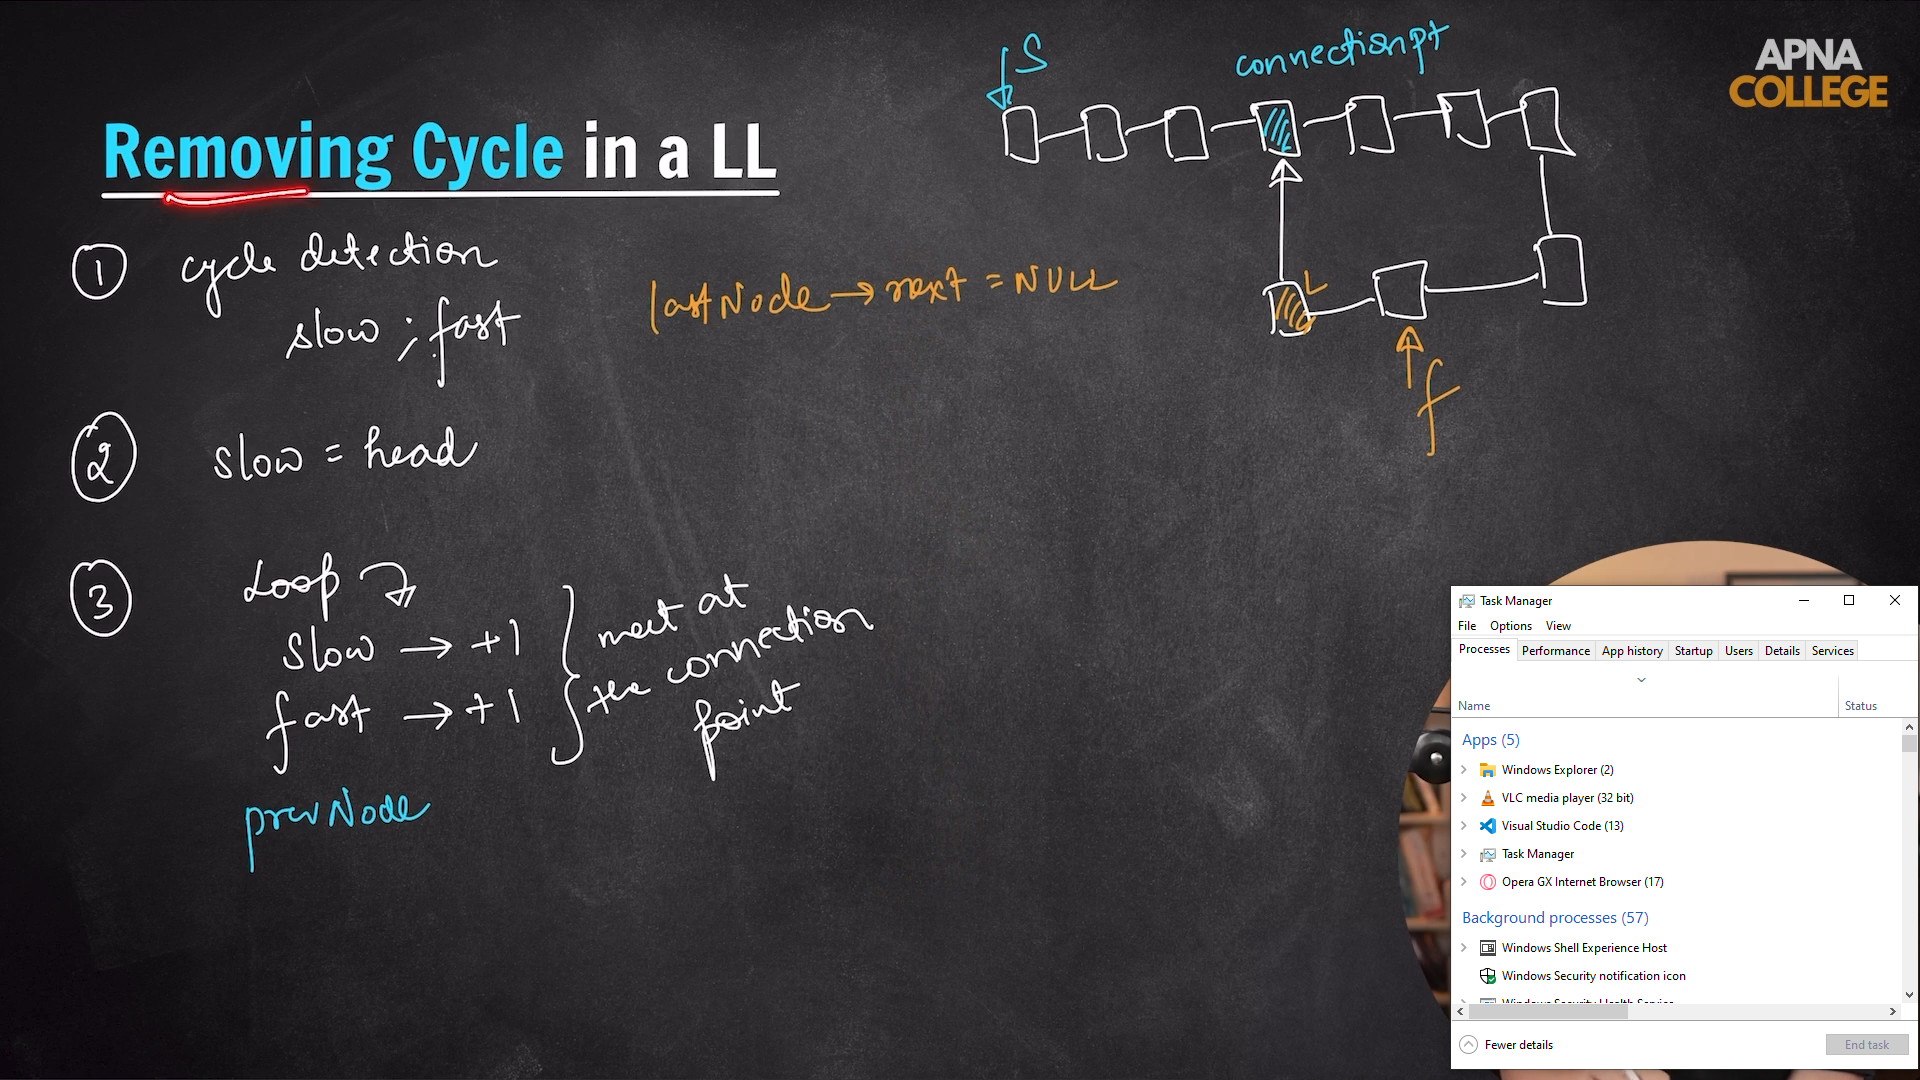 APNA
COLLEGE
Removing Cycle in a LL
S
connectionpt
① cycle detection
slow ; fast
lastNode → next = NULL
L
f
② slow = head
③ Loop
slow → +1
fast → +1
meet at
the connection
point
prevNode
Task Manager
File Options View
Processes Performance App history Startup Users Details Services
Name Status
Apps (5)
Windows Explorer (2)
VLC media player (32 bit)
Visual Studio Code (13)
Task Manager
Opera GX Internet Browser (17)
Background processes (57)
Windows Shell Experience Host
Windows Security notification icon
Windows Security Health Service
Fewer details End task